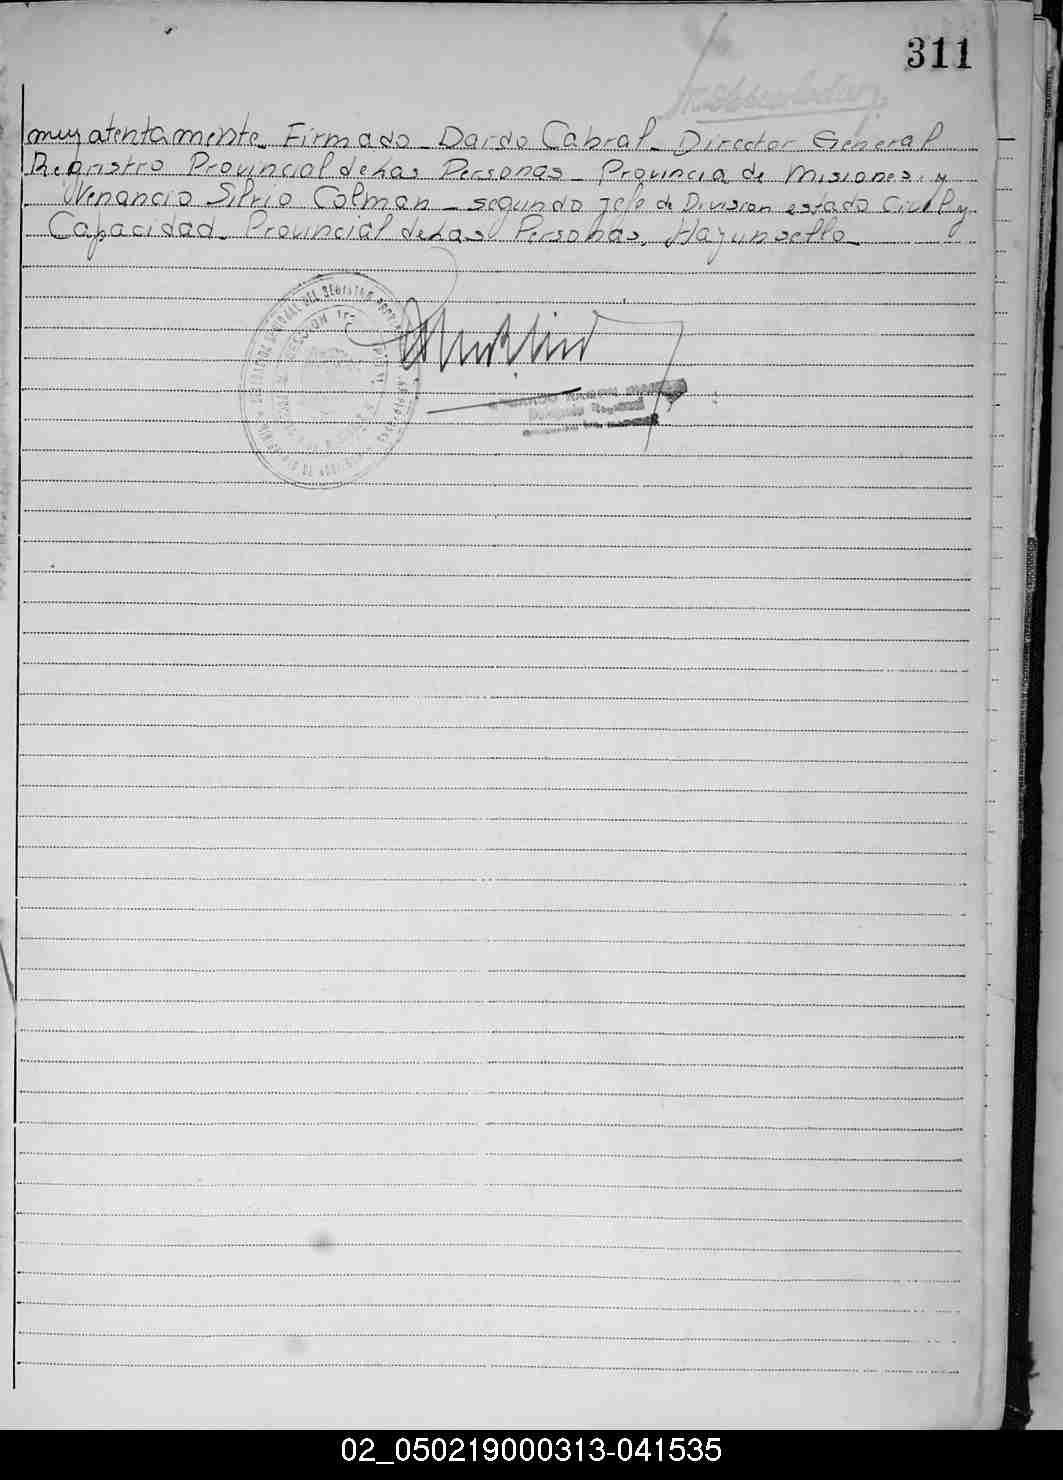 311
muy atentamente_ Firmado_ Dardo Cabral_ Director General
Registro Provincial de Las Personas_ Provincia de Misiones. y
Venancio Silvio Colman_ segundo Jefe de Division estado Civil y
Capacidad_ Provincial de Las Personas. Hay un sello_
02_050219000313-041535